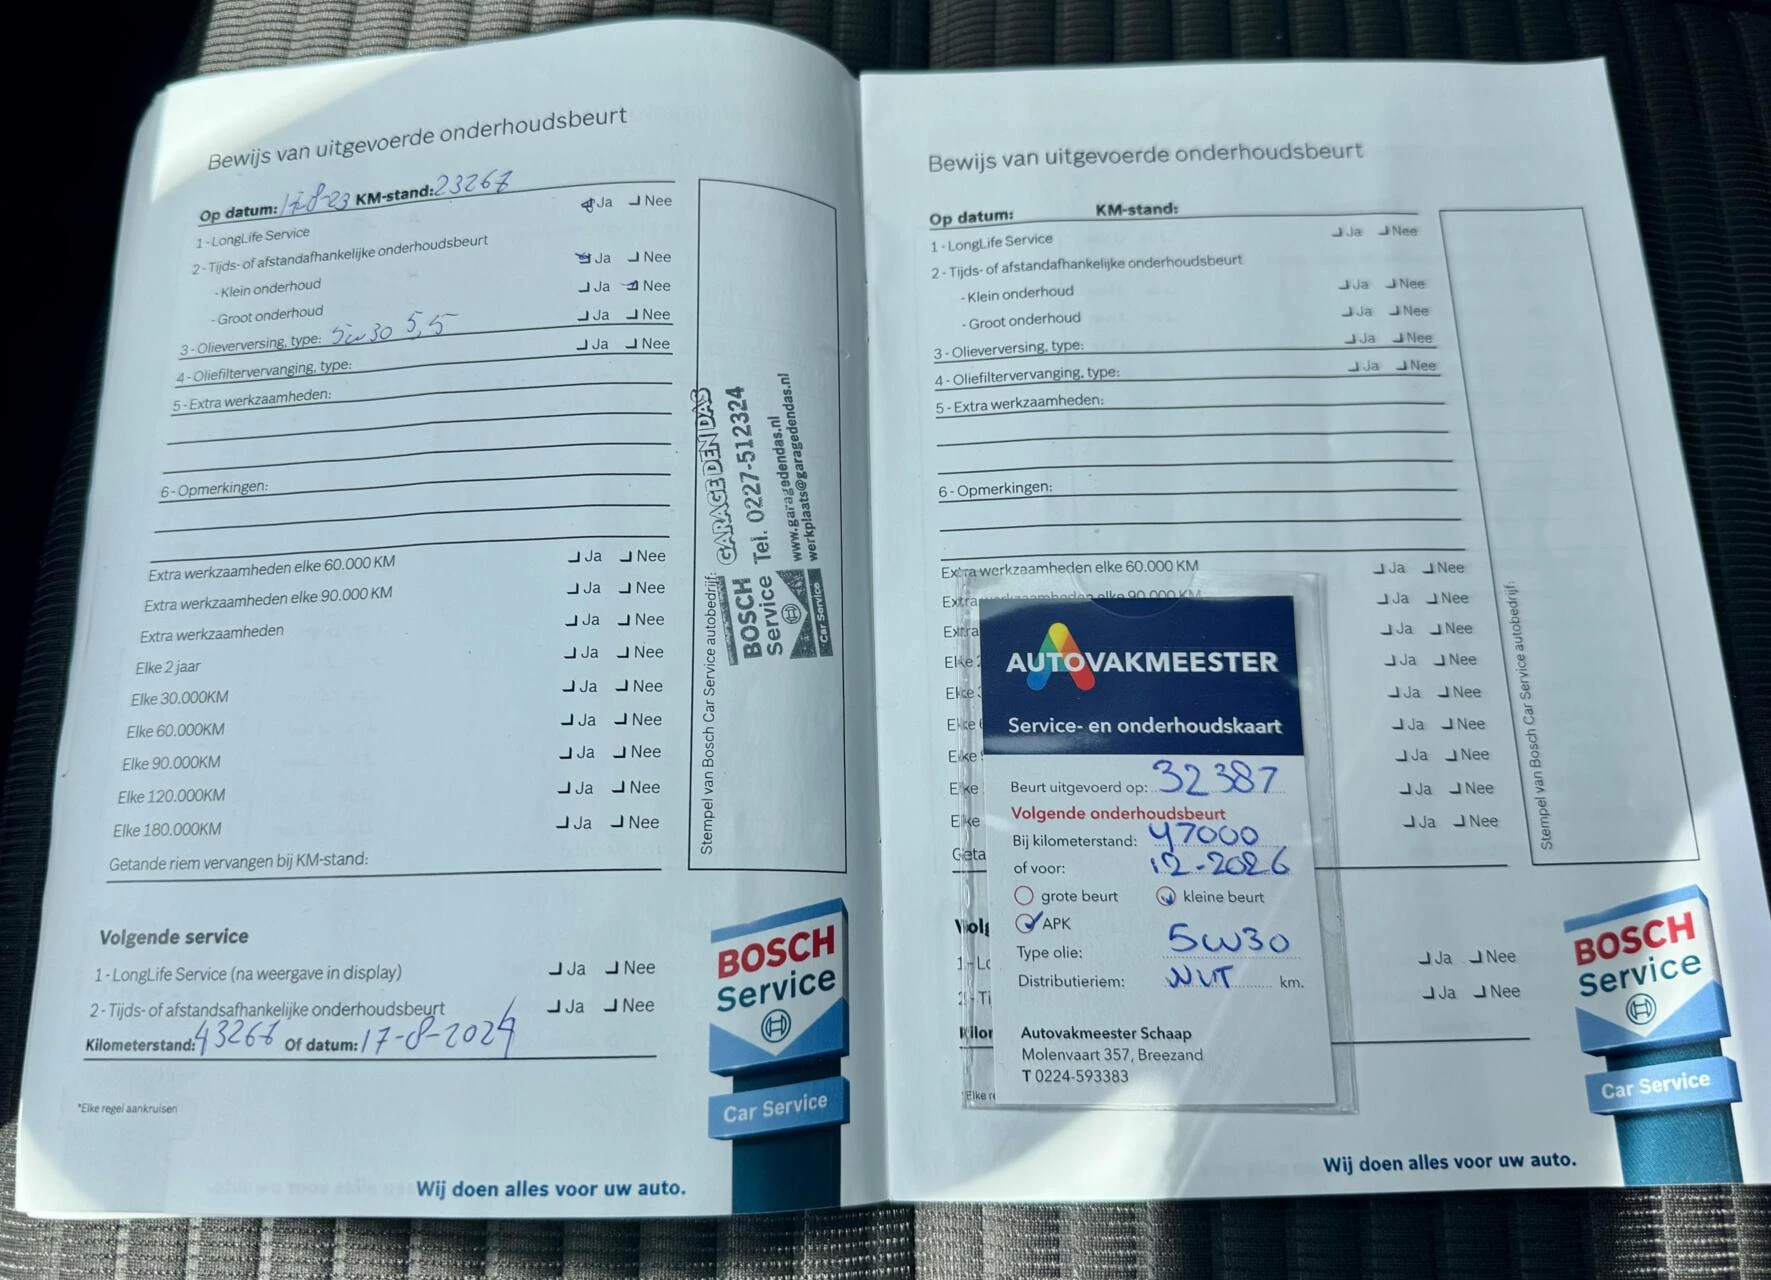 Bewijs van uitgevoerde onderhoudsbeurt
Op datum: 17-8-23 KM-stand: 23267
1 - LongLife Service Ja Nee
2 - Tijds- of afstandafhankelijke onderhoudsbeurt
- Klein onderhoud Ja Nee
- Groot onderhoud Ja Nee
3 - Olieverversing, type: 5w30 5,5 Ja Nee
4 - Oliefiltervervanging, type: Ja Nee
5 - Extra werkzaamheden:
6 - Opmerkingen:
Extra werkzaamheden elke 60.000 KM Ja Nee
Extra werkzaamheden elke 90.000 KM Ja Nee
Extra werkzaamheden Ja Nee
Elke 2 jaar Ja Nee
Elke 30.000KM Ja Nee
Elke 60.000KM Ja Nee
Elke 90.000KM Ja Nee
Elke 120.000KM Ja Nee
Elke 180.000KM Ja Nee
Getande riem vervangen bij KM-stand:
Stempel van Bosch Car Service autobedrijf:
GARAGE DEN DAS
BOSCH
Service
Tel. 0227-512324
www.garagedendas.nl
werkplaats@garagedendas.nl
Car Service
Volgende service
1 - LongLife Service (na weergave in display) Ja Nee
2 - Tijds- of afstandsafhankelijke onderhoudsbeurt Ja Nee
Kilometerstand: 43267 Of datum: 17-8-2024
*Elke regel aankruisen
BOSCH
Service
Car Service
Wij doen alles voor uw auto.
Bewijs van uitgevoerde onderhoudsbeurt
Op datum: KM-stand:
1 - LongLife Service Ja Nee
2 - Tijds- of afstandafhankelijke onderhoudsbeurt
- Klein onderhoud Ja Nee
- Groot onderhoud Ja Nee
3 - Olieverversing, type: Ja Nee
4 - Oliefiltervervanging, type: Ja Nee
5 - Extra werkzaamheden:
6 - Opmerkingen:
Extra werkzaamheden elke 60.000 KM Ja Nee
Extra werkzaamheden elke 90.000 KM Ja Nee
Extra Ja Nee
Elke 2 Ja Nee
Elke Ja Nee
Elke Ja Nee
Elke Ja Nee
Elke Ja Nee
Elke Ja Nee
Geta
Stempel van Bosch Car Service autobedrijf:
AUTOVAKMEESTER
Service- en onderhoudskaart
Beurt uitgevoerd op: 32387
Volgende onderhoudsbeurt
Bij kilometerstand: 47000
of voor: 12-2026
grote beurt kleine beurt
APK
Type olie: 5W30
Distributieriem: NVT km.
Autovakmeester Schaap
Molenvaart 357, Breezand
T 0224-593383
Volg
1 - Lo Ja Nee
2 - Ti Ja Nee
Kilor
*Elke re
BOSCH
Service
Car Service
Wij doen alles voor uw auto.